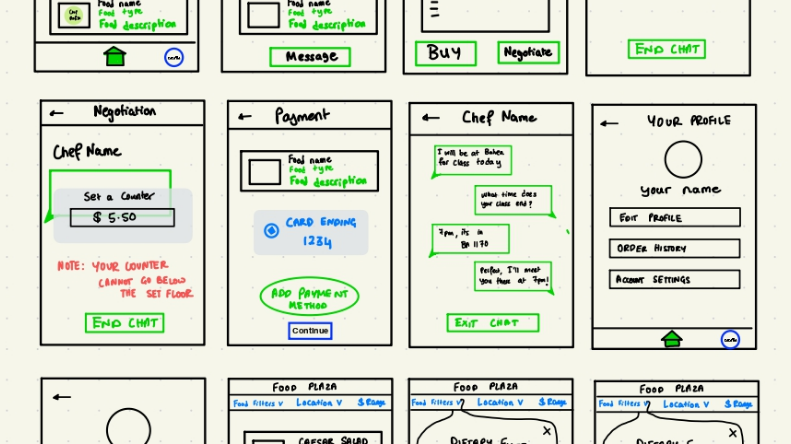 Food name
Food type
Food description
Food name
Food type
Food description
Message
BUY
Negotiate
END CHAT
Negotiation
Chef Name
Set a Counter
$ 5.50
NOTE: YOUR COUNTER
CANNOT GO BELOW
THE SET FLOOR
END CHAT
Payment
Food name
Food type
Food description
CARD ENDING
1234
ADD PAYMENT
METHOD
Continue
Chef Name
I will be at Bahen
for class today
What time does
your class end?
7pm, its in
BA 1170
Perfect, I'll meet
you there at 7pm!
EXIT CHAT
YOUR PROFILE
your name
EDIT PROFILE
ORDER HISTORY
ACCOUNT SETTINGS
FOOD PLAZA
Food Filters V Location V $ Range
CAESAR SALAD
FOOD PLAZA
Food Filters V Location V $ Range
X
FOOD PLAZA
Food Filters V Location V $ Range
X